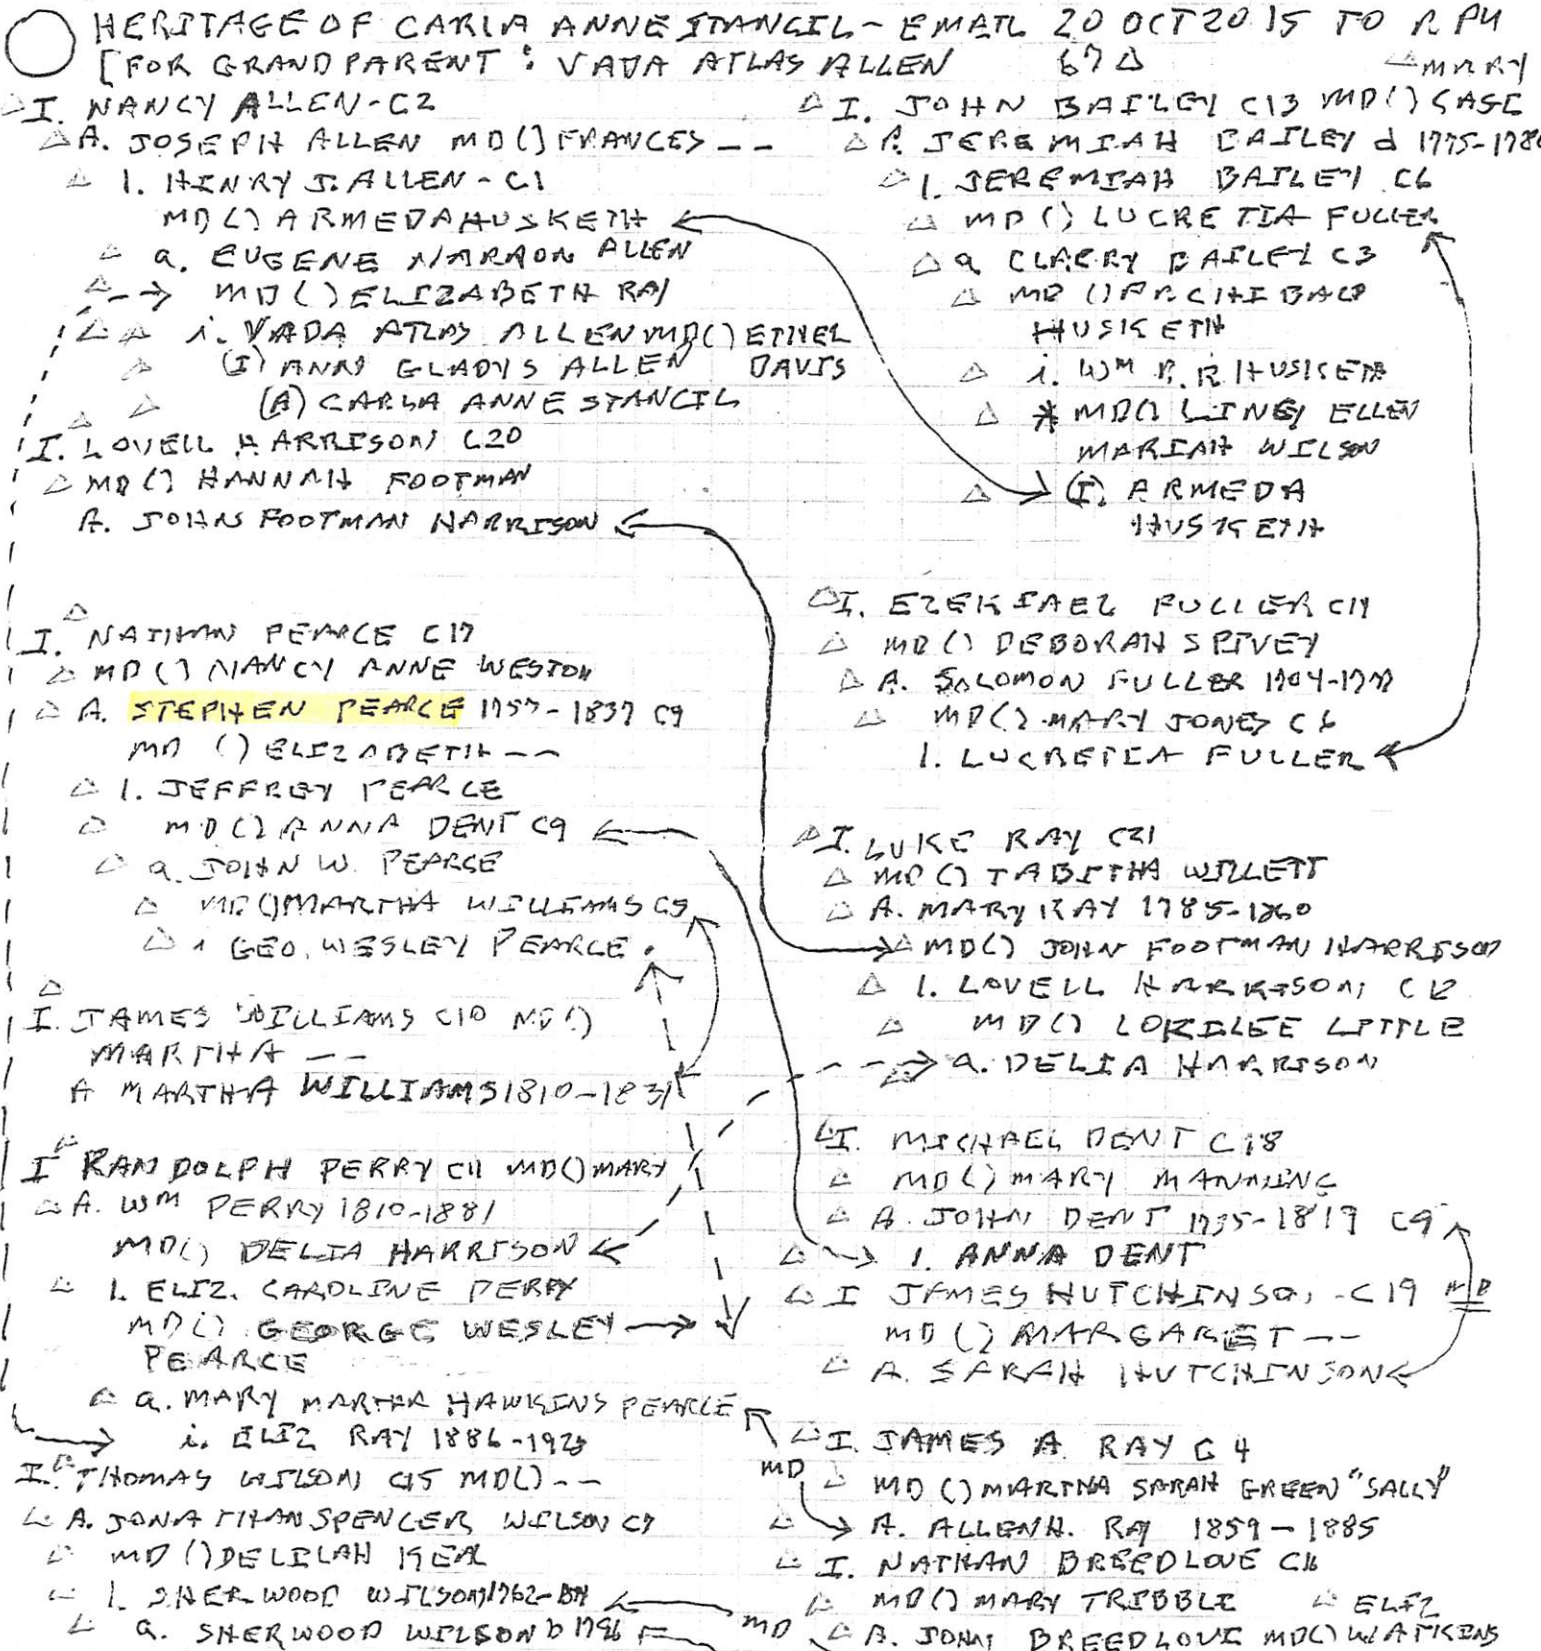 HERITAGE OF CARLA ANNE STANCIL - EMAIL 20 OCT 2015 TO RPH
[FOR GRANDPARENT: VADA ATLAS ALLEN 67 Δ
I. NANCY ALLEN - C2
A. JOSEPH ALLEN MD() FRANCES --
1. HENRY J. ALLEN - C1
MD() ARMEDA HUSKETH
a. EUGENE AARON ALLEN
MD() ELIZABETH RAY
i. VADA ATLAS ALLEN MD() ETHEL DAVIS
(I) ANN GLADYS ALLEN
(A) CARLA ANNE STANCIL
I. LOVELL HARRISON C20
MD() HANNAH FOOTMAN
A. JOHN FOOTMAN HARRISON
I. NATHAN PEARCE C17
MD() NANCY ANNE WESTON
A. STEPHEN PEARCE 1757-1837 C9
MD () ELIZABETH --
1. JEFFREY PEARCE
MD() ANNA DENT C9
a. JOHN W. PEARCE
MD() MARTHA WILLIAMS C5
i GEO. WESLEY PEARCE
I. JAMES WILLIAMS C10 MD()
MARTHA --
A MARTHA WILLIAMS 1810-1831
I RANDOLPH PERRY C11 MD() MARY
A. WM PERRY 1810-1881
MD() DELIA HARRISON
1. ELIZ. CAROLINE PERRY
MD() GEORGE WESLEY
PEARCE
a. MARY MARTHA HAWKINS PEARCE
i. ELIZ RAY 1886-1923
I. THOMAS WILSON C15 MD() --
A. JONATHAN SPENCER WILSON C7
MD () DELILAH KEAL
1. SHERWOOD WILSON 1762-
a. SHERWOOD WILSON b 1796
MARY
I. JOHN BAILEY C13 MD() CASE
A. JEREMIAH BAILEY d 1775-1786
1. JEREMIAH BAILEY C6
MD () LUCRETIA FULLER
a CLARRY BAILEY C3
MD () ARCHIBALD
HUSKETH
i. WM R. R HUSKETH
* MD() LINEY ELLEN
MARIAH WILSON
(I). ARMEDA
HUSKETH
I. EZEKIAEL FULLER C14
MD () DEBORAH SPIVEY
A. SOLOMON FULLER 1704-1777
MD() MARY JONES C6
1. LUCRETIA FULLER
I. LUKE RAY C21
MD () TABITHA WILLETT
A. MARY RAY 1785-1860
MD() JOHN FOOTMAN HARRISON
1. LOVELL HARRISON, C12
MD() LORILEE LITTLE
a. DELIA HARRISON
I. MICHAEL DENT C18
MD () MARY MANNING
A. JOHN DENT 1735-1819 C9
1. ANNA DENT
I JAMES HUTCHINSON - C19 MD
MD () MARGARET --
A. SARAH HUTCHINSON
I. JAMES A. RAY C4
MD
MD () MARTHA SARAH GREEN "SALLY"
A. ALLEN H. RAY 1859-1885
I. NATHAN BREEDLOVE C16
MD() MARY TRIBBLE ELIZ
MD A. JOHN BREEDLOVE MD() WATKINS